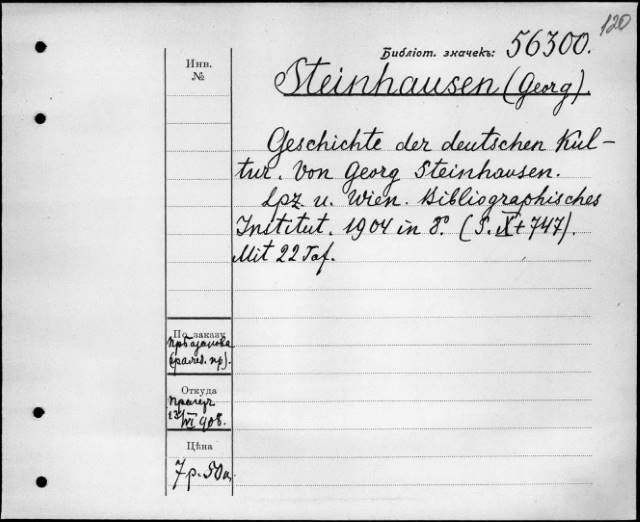 120
Библіот. значекъ: 56300.
Инв.
№
Steinhausen (Georg).
Geschichte der deutschen Kul-
tur. Von Georg Steinhausen.
Lpz u. Wien. Bibliographisches
Institut. 1904 in 8º. (S. X + 747).
Mit 22 Taf.
По заказу
Откуда
23/VI 908.
Цѣна
7 р. 50 к.